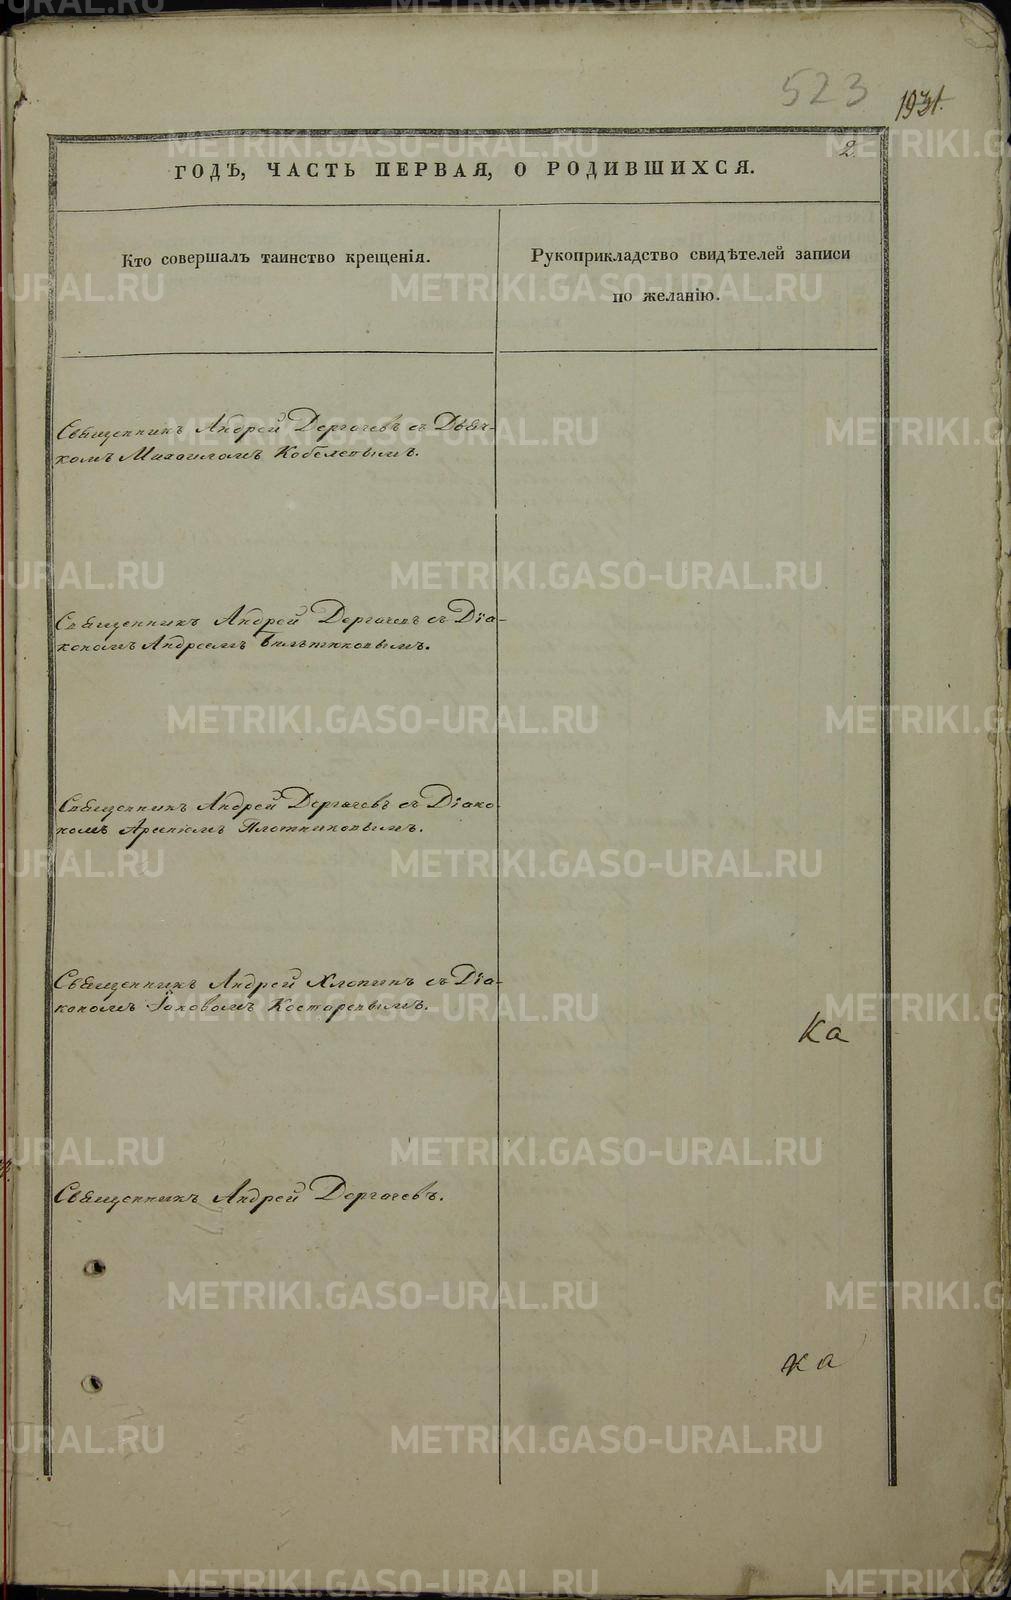 523
2
ГОДЪ, ЧАСТЬ ПЕРВАЯ, О РОДИВШИХСЯ.
Кто совершалъ таинство крещенія.
Рукоприкладство свидѣтелей записи
по желанію.
Священникъ Андрей Дергачевъ съ Дьяч-
комъ Михаиломъ Кобелевымъ.
Священникъ Андрей Дергачевъ съ Діа-
кономъ Андреемъ
Священникъ Андрей Дергачевъ съ Діако-
номъ Арсеніемъ Плотниковымъ.
Священникъ Андрей Хлопинъ съ Діа-
кономъ Іаковомъ Костаревымъ.
Ка
Священникъ Андрей Дергачевъ.
Ка
METRIKI.GASO-URAL.RU